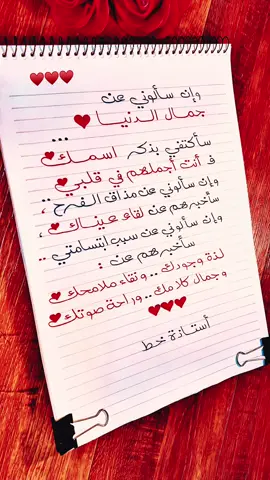 وإن سألوني عن
جمال الدنيا
...
سأكتفي بذكر اسمك
فـ أنت أجملهم في قلبي
وإن سألوني عن مذاق الفرح ،،
سأخبرهم عن لقاء عيناك ،
وإن سألوني عن سبب ابتسامتي ..
سأخبرهم عن :
لذة وجودك .. ونقاء ملامحك
وجمال كلامك .. وراحة صوتك
أستاذة خط